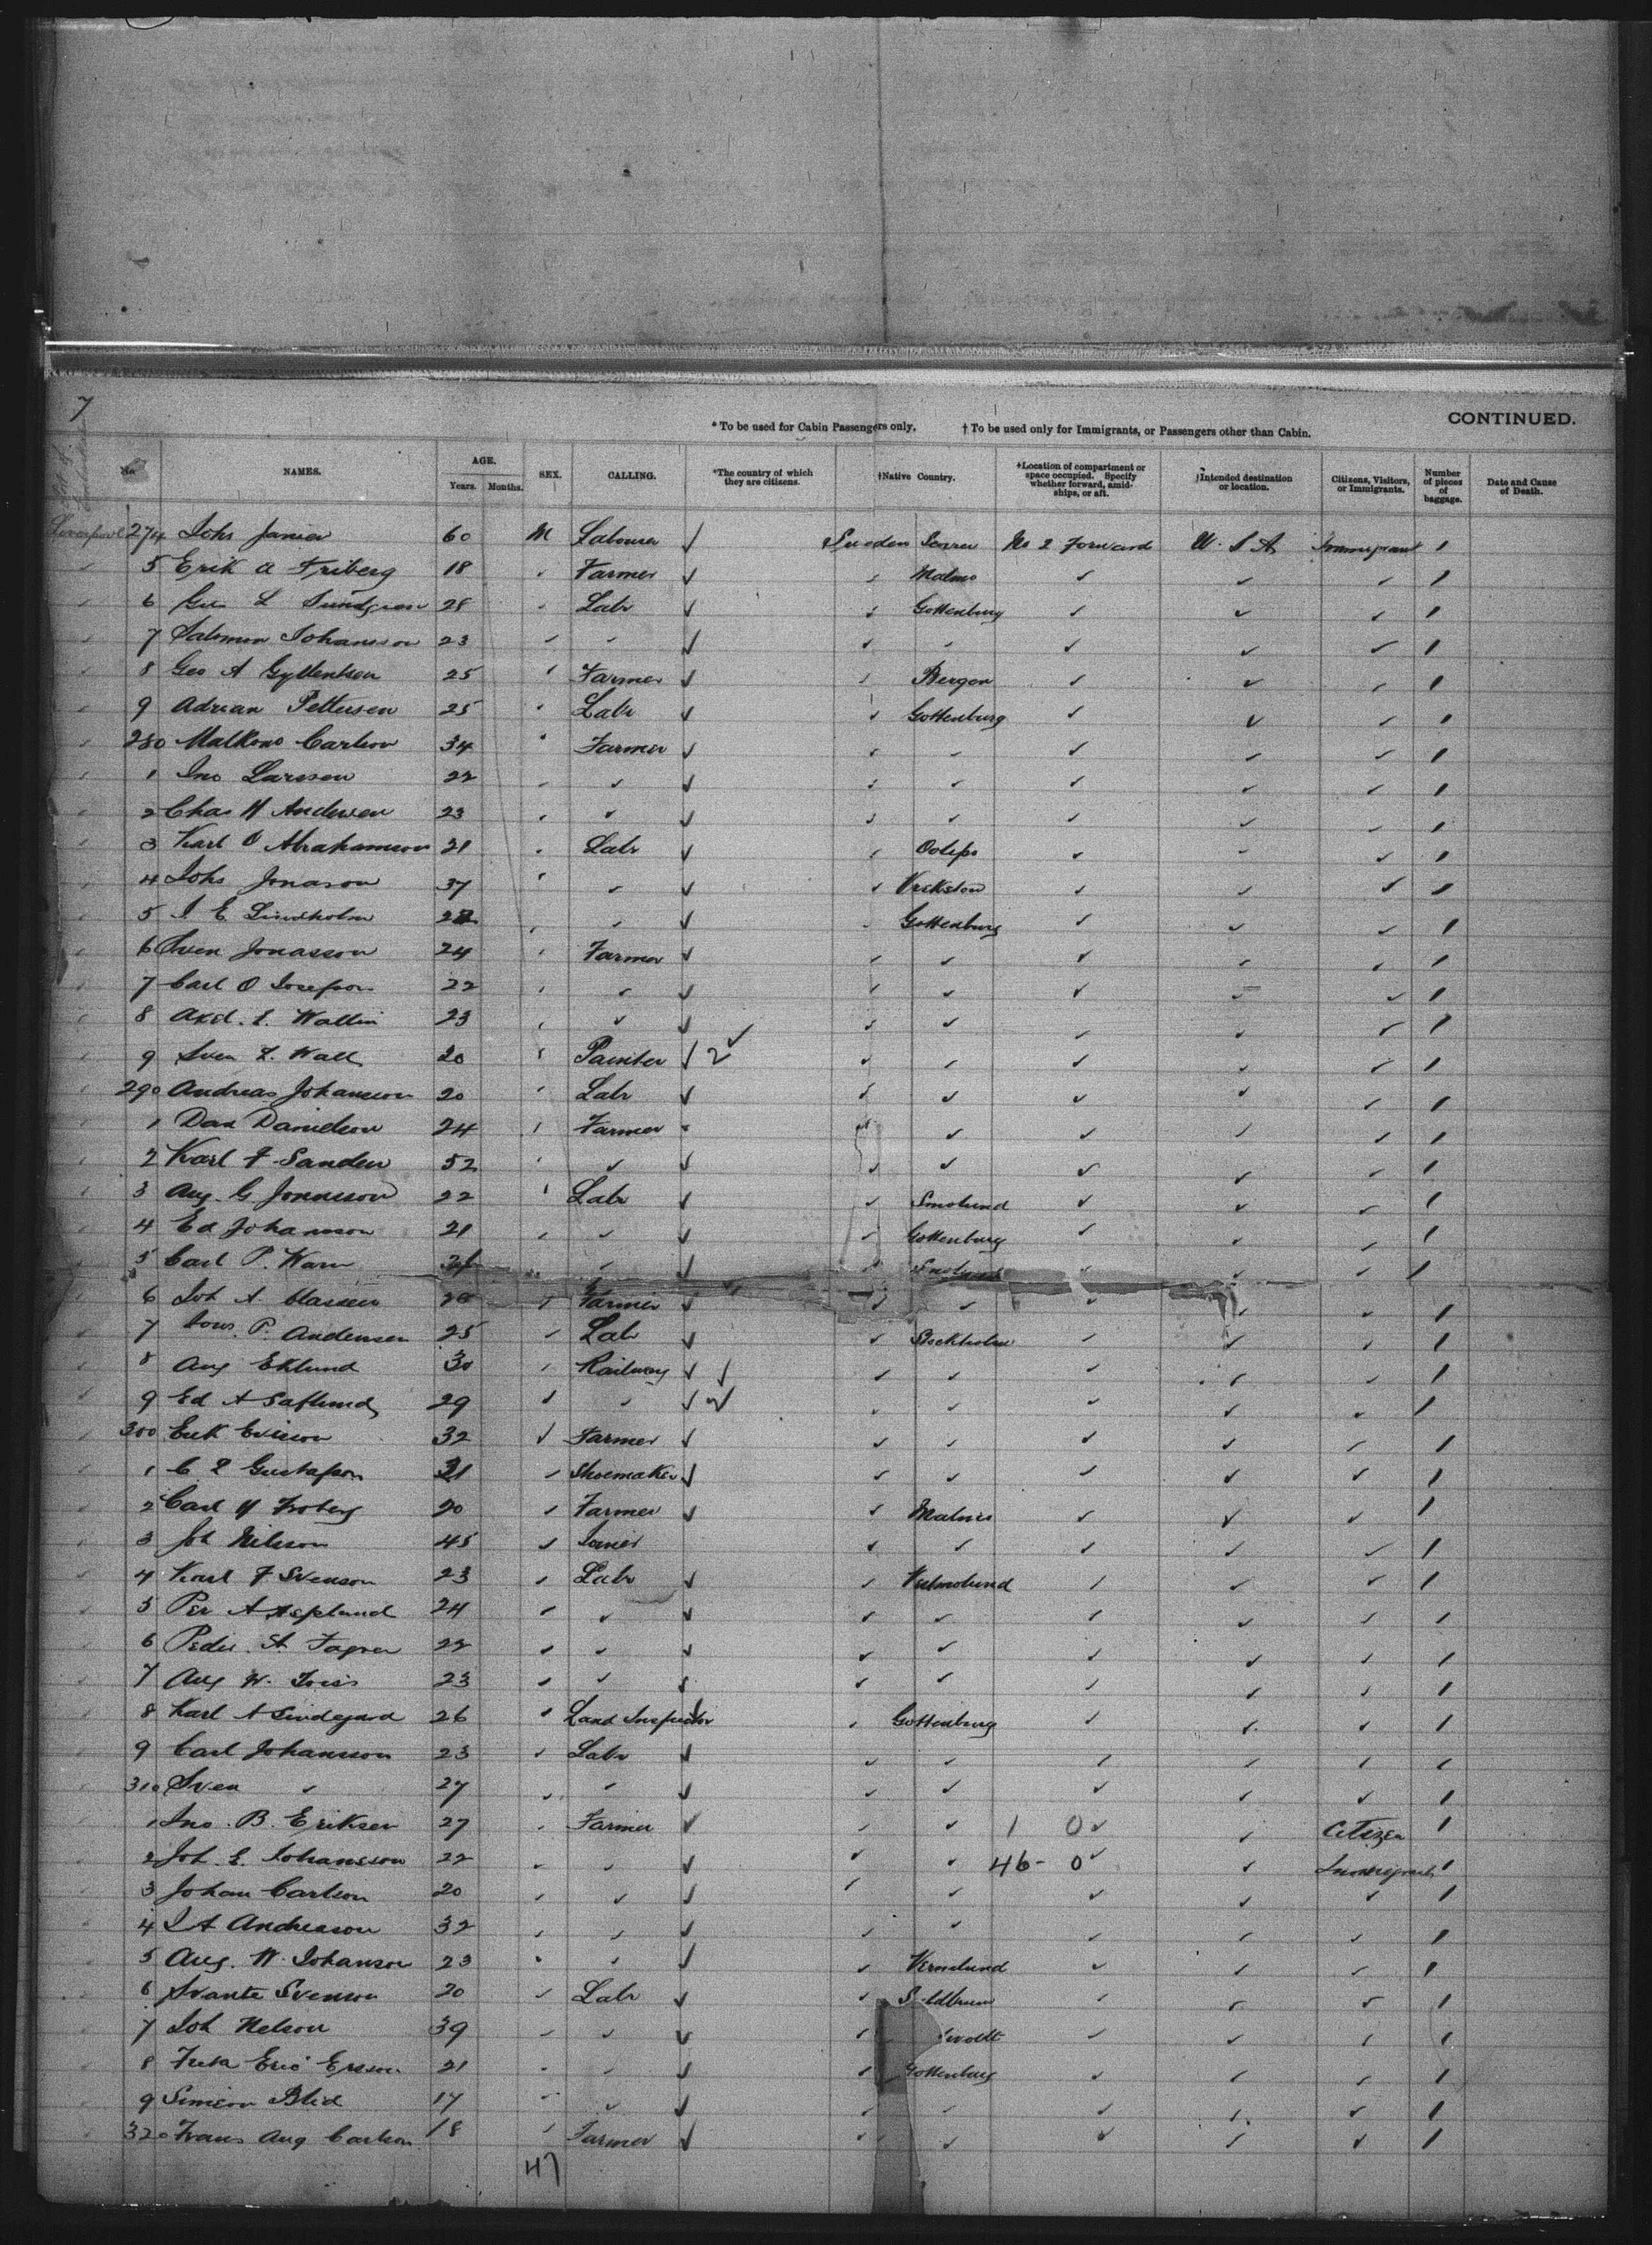 7
CONTINUED.
* To be used for Cabin Passengers only. † To be used only for Immigrants, or Passengers other than Cabin.
No NAMES. AGE. Years. Months. SEX. CALLING. *The country of which they are citizens. †Native Country. †Location of compartment or space occupied. Specify whether forward, amidships, or aft. †Intended destination or location. Citizens, Visitors, or Immigrants. Number of pieces of baggage. Date and Cause of Death.
Liverpool 274 Johs 60 M Labourer ✓ Sweden No 2 Forward U.S.A. Immigrant 1
5 Erik A Friberg 18 Farmer ✓ Malmo ✓ ✓ ✓ 1
6 L 28 Labr Gottenburg ✓ ✓ ✓ 1
7 Salomon Johansson 23 ✓ ✓ ✓ ✓ ✓ ✓ 1
8 Geo A Gyllenhsen 25 Farmer ✓ Bergen ✓ ✓ ✓ 1
9 Adrian Pettersen 25 Labr ✓ Gottenburg ✓ ✓ ✓ 1
280 Carlson 34 Farmer ✓ ✓ ✓ ✓ ✓ 1
1 Jno Larsson 22 ✓ ✓ ✓ ✓ ✓ ✓ 1
2 Chas Andersen 23 ✓ ✓ ✓ ✓ ✓ ✓ 1
3 Karl O Abrahamson 21 Labr ✓ ✓ ✓ ✓ 1
4 Johs Jonason 37 ✓ ✓ ✓ ✓ ✓ 1
5 J E Lindholm ✓ ✓ Gottenburg ✓ ✓ ✓ 1
6 Sven Jonasson 24 Farmer ✓ ✓ ✓ ✓ ✓ 1
7 Carl O Josefson 22 ✓ ✓ ✓ ✓ ✓ ✓ 1
8 Axel. Wallin 23 ✓ ✓ ✓ ✓ ✓ ✓ 1
9 Sven Wall 20 Painter ✓ 2 ✓ ✓ ✓ ✓ ✓ 1
290 Andreas Johansson 20 Labr ✓ ✓ ✓ ✓ ✓ 1
1 Dan Danielson 24 Farmer ✓ ✓ ✓ ✓ 1
2 Karl F Sanden 52 ✓ ✓ ✓ ✓ ✓ ✓ 1
3 Aug. G Jonasson 22 Labr ✓ Smolund ✓ ✓ ✓ 1
4 Ed Johansson 21 ✓ ✓ Gottenburg ✓ ✓ ✓ 1
5 Carl P. Warn ✓ ✓ ✓ ✓ ✓ 1
6 Joh A. Farmer ✓ ✓ ✓ ✓ ✓ 1
7 P. Andersen 25 Lab ✓ Stockholm ✓ ✓ ✓ 1
8 Aug Eklund 30 Railway ✓ ✓ ✓ ✓ ✓ ✓ 1
9 Ed A Saflund 29 ✓ ✓ 2 ✓ ✓ ✓ ✓ ✓ 1
300 Erik Ericson 32 Farmer ✓ ✓ ✓ ✓ ✓ 1
1 Gustafson 31 Shoemaker ✓ ✓ ✓ ✓ ✓ 1
2 Carl Froberg 20 Farmer ✓ Malmo ✓ ✓ ✓ 1
3 Joh Nilsson 45 ✓ ✓ ✓ ✓ 1
4 Karl F Svenson 23 Labr ✓ ✓ ✓ ✓ 1
5 Per A Asplund 24 ✓ ✓ ✓ ✓ ✓ ✓ 1
6 Peder A. Fagren 22 ✓ ✓ ✓ ✓ ✓ ✓ 1
7 Aug W. 23 ✓ ✓ ✓ ✓ ✓ ✓ 1
8 Karl A Lindegard 26 Land Inspector Gottenburg ✓ ✓ ✓ 1
9 Carl Johansson 23 Labr ✓ ✓ ✓ ✓ ✓ 1
310 Sven ✓ 27 ✓ ✓ ✓ ✓ ✓ ✓ 1
1 Jno. B. Eriksen 27 Farmer ✓ ✓ 1 0 ✓ ✓ Citizen 1
2 Joh. E. Johansson 22 ✓ ✓ ✓ 46 - 0 ✓ ✓ Immigrant 1
3 Johan Carlson 20 ✓ ✓ ✓ ✓ ✓ ✓ 1
4 Andreason 32 ✓ ✓ ✓ ✓ ✓ ✓ 1
5 Aug. W. Johanson 23 ✓ ✓ Vermlund ✓ ✓ ✓ 1
6 Svante Svenson 20 Labr ✓ ✓ ✓ ✓ 1
7 Joh Nelson 39 ✓ ✓ ✓ ✓ ✓ 1
8 Eric 21 ✓ ✓ Gottenburg ✓ ✓ ✓ 1
9 Simeon Blid 17 ✓ ✓ ✓ ✓ ✓ ✓ 1
320 Frans Aug Carlson 18 Farmer ✓ ✓ ✓ ✓ ✓ 1
47